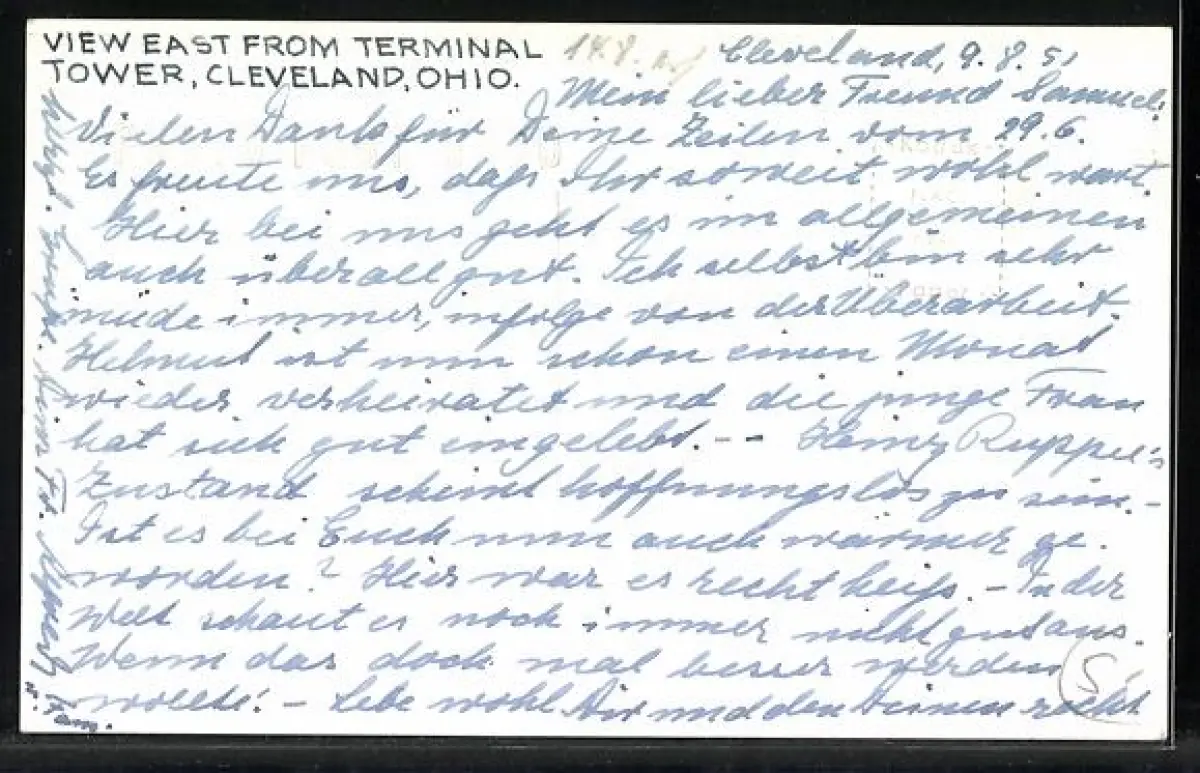 VIEW EAST FROM TERMINAL
TOWER, CLEVELAND, OHIO.
14.8.
Cleveland, 9.8.51
Mein lieber Freund Samuel.
Vielen Dank für Deine Zeilen vom 29.6.
Es freute uns, dass Ihr soweit wohl wart.
Hier bei uns geht es im allgemeinen
auch überall gut. Ich selbst bin sehr
müde immer, infolge von der Überarbeit.
Helmut ist nun schon einen Monat
wieder verheiratet und die junge Frau
hat sich gut eingelebt. -- Heinz Ruppel's
Zustand scheint hoffnungslos zu sein. -
Ist es bei Euch nun auch wärmer ge-
worden? Hier war es recht heiss. - In der
Welt schaut es noch immer nicht gut aus.
Wenn das doch mal besser werden
wollte! - Lebe wohl Dir und den Deinen recht
S
herzl. Grüsse. Euer Fr.
u. Fam.